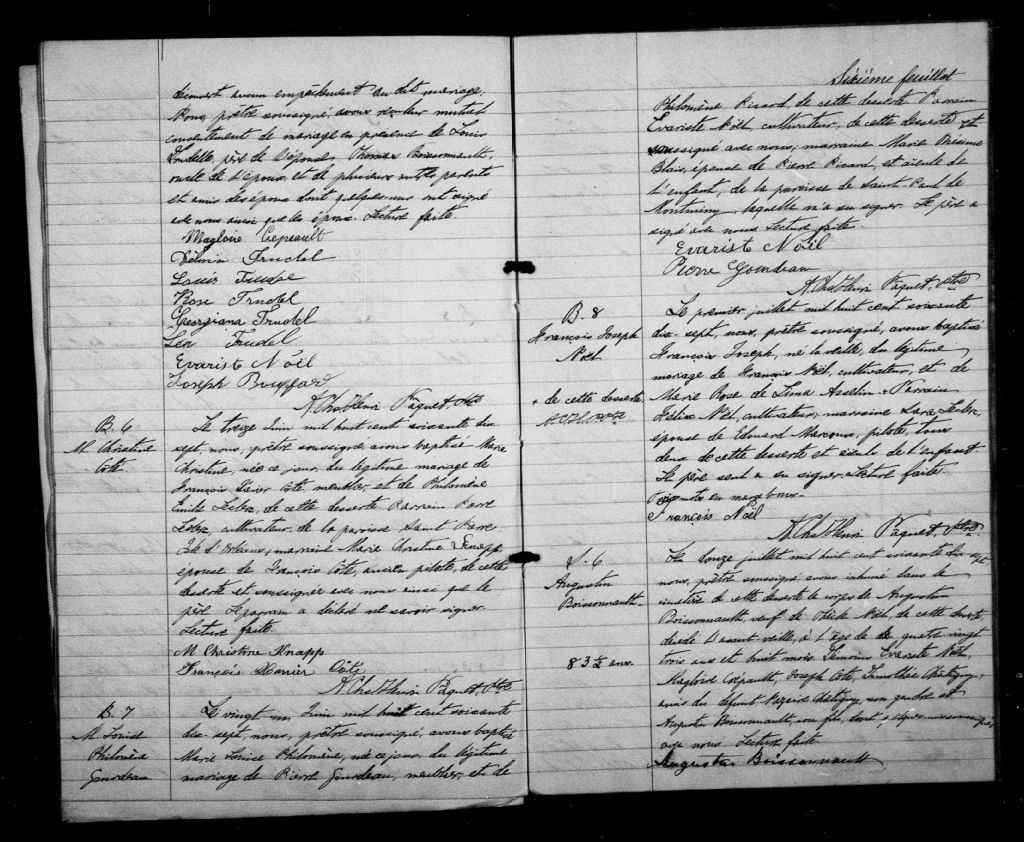 découvert aucun empêchement au dit mariage,
Nous, prêtre soussigné, avons reçu leur mutuel
consentement de mariage en présence de Louis
Trudelle, père de l'épouse, Thomas Boissonnault,
oncle de l'époux, et de plusieurs autres parents
et amis des époux dont quelques-uns ont signé
avec nous ainsi que les époux. Lecture faite.
Magloire Crepeault
Trudel
Louis Trudel
Rose Trudel
Georgiana Trudel
Lea Trudel
Evarist Noël
Joseph
A. Chs Henri Paquet, Ptre
B. 6
M. Christine
Côté
Le treize Juin mil huit cent soixante dix
sept, nous, prêtre soussigné, avons baptisé Marie
Christine, née ce jour, du légitime mariage de
François Xavier Côté, meublier, et de Philomène
Emilie Leclerc, de cette desserte. Parrain Pierre
Leclerc, cultivateur, de la paroisse Saint Pierre
Ile d'Orléans; marraine Marie Christine Knapp,
épouse de François Côté, ancien pilote, de cette
desserte et soussignée avec nous ainsi que le
père. Le parrain a déclaré ne savoir signer.
Lecture faite.
M Christine Knapp
François Xavier Côté
A. Chs Henri Paquet, Ptre
B. 7
M. Louise
Philomène
Gourdeau
Le vingt un Juin mil huit cent soixante
dix-sept nous, prêtre soussigné, avons baptisé
Marie Louise Philomène, née ce jour du légitime
mariage de Pierre Gourdeau, meublier, et de
Sixième feuillet
Philomène Picard de cette desserte. Parrain
Evariste Noël, cultivateur, de cette desserte et
soussigné avec nous; marraine Marie
Blais, épouse de Pierre Picard, et aïeule de
l'enfant, de la paroisse de Saint-Paul de
Montminy, laquelle n'a su signer. Le père a
signé avec nous. Lecture faite.
Evarist Noël
Pierre Gourdeau
A. Chs Henri Paquet, Ptre
B. 8
François Joseph
Noël
+ de cette desserte
A.C.H.P. Ptre
Le premier juillet mil huit cent soixante
dix-sept, nous, prêtre soussigné, avons baptisé
François Joseph, né la veille, du légitime
mariage de François Noël, cultivateur, et de
Marie Rose de Lima Asselin. + Parrain
Noël, cultivateur, marraine Leclerc,
épouse de Edouard Marcoux, pilote, tous
deux de cette desserte et aïeuls de l'enfant.
Le père seul a su signer. Lecture faite.
en marge bons.
François Noël
A. Chs Henri Paquet, Ptre
S. 6
Augustin
Boissonnault
83 ⅔ ans.
Le douze juillet mil huit cent soixante dix sept
nous, prêtre soussigné avons inhumé dans le
cimetière de cette desserte le corps de Augustin
Boissonnault, veuf de Noël, de cette desserte,
décédé l'avant veille, à l'âge de quatre vingt
trois ans et huit mois. Témoins Evariste Noël,
Magloire Crépault, Joseph Côté, Timothée Chatigny,
amis du défunt Chatigny son gendre et
Augustin Boissonnault, son fils, dont
avec nous. Lecture faite.
Augustin Boissonnault